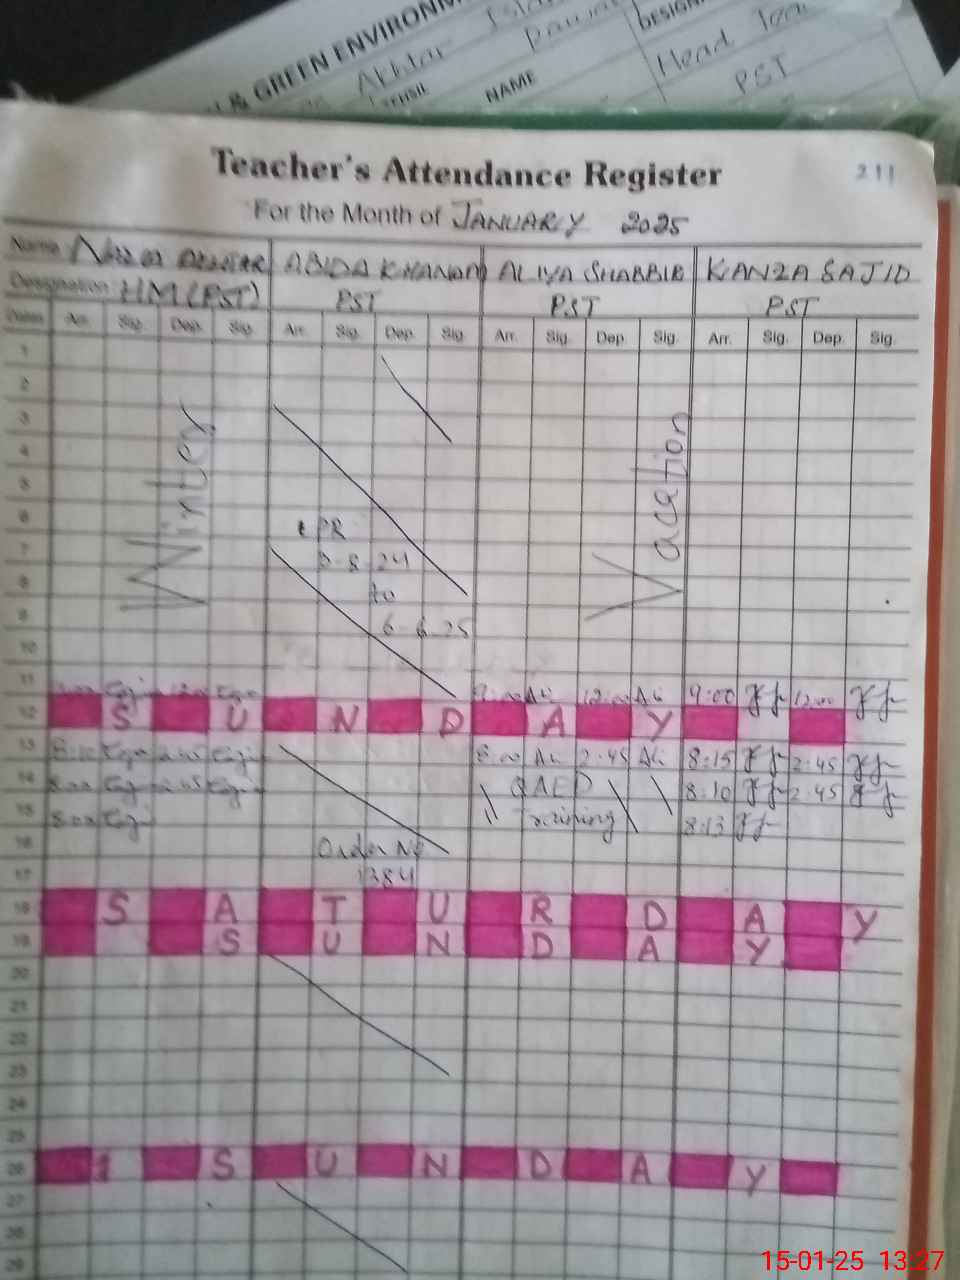 & GREEN ENVIRONM
Akhtar Isla
DESIGNA
NAME
Head Tea
PST
Teacher's Attendance Register
211
For the Month of JANUARY 2025
Name ABIDA KHANAM ALIYA SHABBIR KANZA SAJID
Designation HM (PST) PST PST PST
Dates Arr. Sig. Dep. Sig. Arr. Sig. Dep. Sig. Arr. Sig. Dep. Sig. Arr. Sig. Dep. Sig.
1
2
3
4
5
6
7
8
9
10
Winter
Vacation
LPR
24
to
6-6-25
11 9:00 12:00 9:00 12:00
12 S U N D A Y
13 8:00 2:45 8:15 2:45
14 8:00 2:45 QAED 8:10 2:45
15 8:00 Training 8:13
16 Order No
17 1384
18 S A T U R D A Y
19 S U N D A Y
20
21
22
23
24
25
26 S U N D A Y
27
28
29
15-01-25 13:27